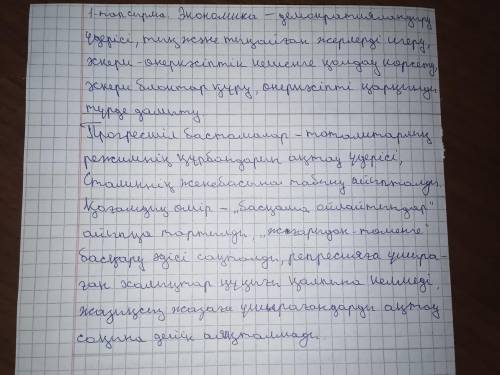 1-тапсырма. Экономика – демократияландыру
үдерісі, тың және тыңайған жерлерді игеру,
әскери-өнеркәсіптік кешенге қолдау көрсету,
әскери блоктар құру, өнеркәсіпті қарқынды
түрде дамыту
Прогресшіл бастамалар – тоталитарлық
режимнің құрбандарын ақтау үдерісі,
Сталиннің жекебасына табыну айыпталды.
Қоғамдық өмір – "басқаша ойлайтындар"
айыпқа тартылды, "жоғарыдан-төменге"
басқару әдісі сақталды, репрессияға ұшыра-
ған халықтар құқығы қалпына келмеді,
жазықсыз жазаға ұшырағандарды ақтау
соңына дейін аяқталмады.